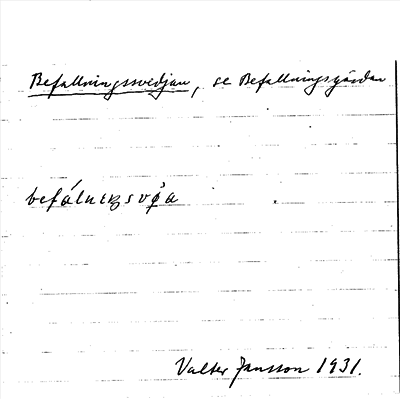 Befallningssvedjan, se Befallningsgärdan
befálnıŋsvǿa
Valter Jansson 1931.